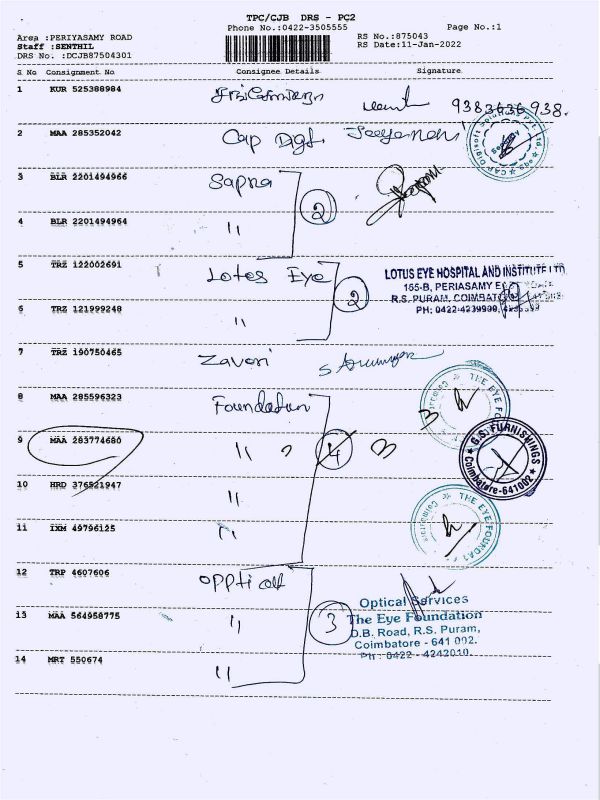 TPC/CJB DRS - PC2
Phone No.:0422-3505555
Page No.:1
Area :PERIYASAMY ROAD
Staff :SENTHIL
DRS No. :DCJB87504301
RS No.:875043
RS Date:11-Jan-2022
S No Consignment No Consignee Details Signature
1 KUR 525388984
2 MAA 285352042 Cap Digi Jeeyanani
CAP Digisoft Solutions Pvt. Ltd.
3 BLR 2201494966 Sapna 2
4 BLR 2201494964 "
5 TRZ 122002691 Lotes Eye 2
LOTUS EYE HOSPITAL AND INSTITUTE LTD
155-B, PERIASAMY
R.S. PURAM, COIMBATORE
PH: 0422-4239999,
6 TRZ 121999248 "
7 TRZ 190750465 Zaveri
8 MAA 285596323 Foundation
THE EYE FOUNDATION Coimbatore
9 MAA 283774680 " 4 3
G.S. FURNISHINGS
Coimbatore-641002
10 HRD 376521947 "
11 IXM 49796125 "
THE EYE FOUNDATION Coimbatore
12 TRP 4607606 oppticalf
13 MAA 564958775 " 3
Optical Services
The Eye Foundation
D.B. Road, R.S. Puram,
Coimbatore - 641 002.
Ph : 0422 - 4242010.
14 MRT 550674 "